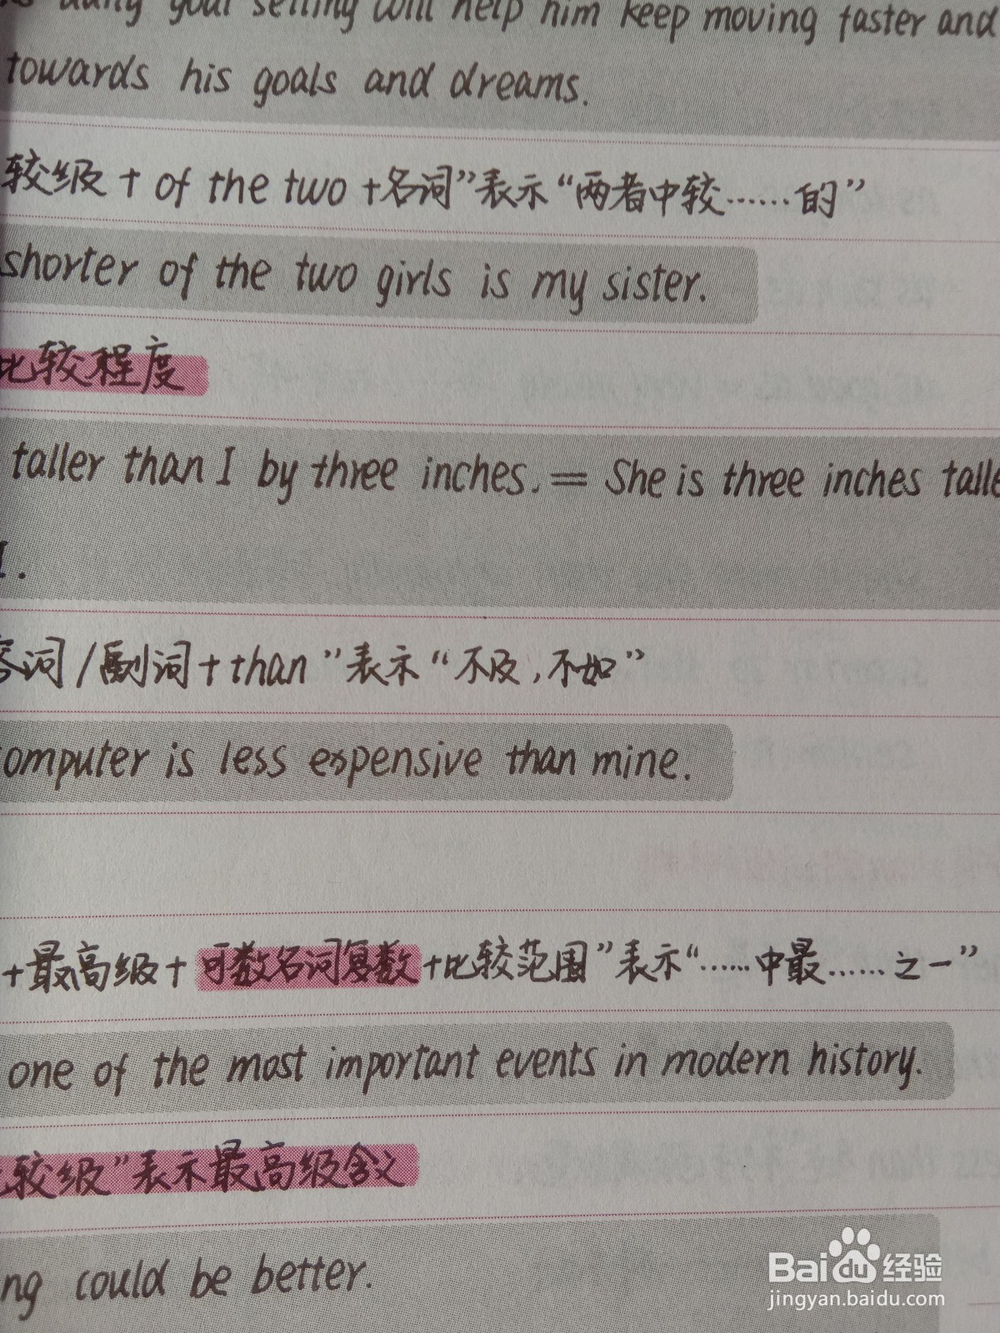 your setting will help him keep moving faster and
towards his goals and dreams.
较级 + of the two +名词”表示“两者中较……的”
shorter of the two girls is my sister.
比较程度
taller than I by three inches. = She is three inches talle
I.
容词/副词+than”表示“不及,不如”
omputer is less expensive than mine.
+最高级+可数名词复数+比较范围”表示“……中最……之一”
one of the most important events in modern history.
较级”表示最高级含义
ng could be better.
Baidu 经验
jingyan.baidu.com